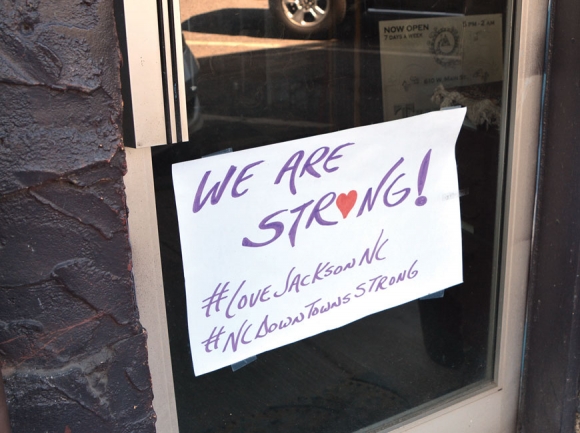 NOW OPEN
7 DAYS A WEEK
WE ARE
STR❤NG!
#LOVEJACKSONNC
#NCDOWNTOWNSSTRONG